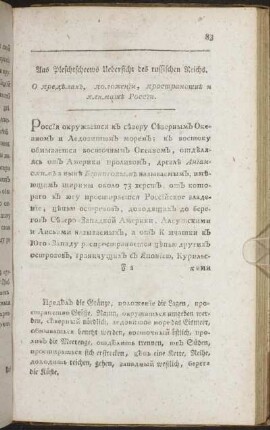 83
Aus Pleschtscheews Uebersicht des russischen Reichs.
О предѣлахъ, положенїи, пространствѣ и
климатѣ Россїи.
Россїя окружается къ сѣверу Сѣвернымъ Океа-
номъ и Ледовитымъ моремъ; къ востоку
обмывается восточнымъ Океаномъ, отдѣля-
ясь отъ Америки проливомъ, древлѣ
нынѣ называемымъ, имѣ-
ющимъ ширины около 73 верстъ, отъ кото-
раго къ югу простирается Россїйское владѣ-
нїе, цѣпью острововъ, доходящихъ до бере-
говъ Сѣверо-Западной Америки, Алеутскими
и Лисьими называемыхъ, а отъ Камчатки къ
Юго-Западу распространяется цѣпью другихъ
острововъ, граничущихъ съ Япониею, Куриль-
скими
Предѣлъ die Gränze, положенїе die Lage, про-
странство Größe, Raum, окружаться umgeben wer-
den, сѣверный nördlich, ледовитое море das Eismeer,
обмываться benetzt werden, восточный östlich, про-
ливъ die Meerenge, отдѣлять trennen, югъ Süden,
простираться sich erstrecken, цѣпь eine Kette, Reihe,
доходить reichen, gehen, западный westlich, берегъ
die Küste.